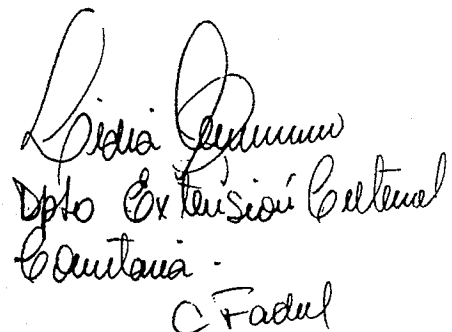 Lidia
Dpto Extensión Cultural
Comitaria.
C Fadul